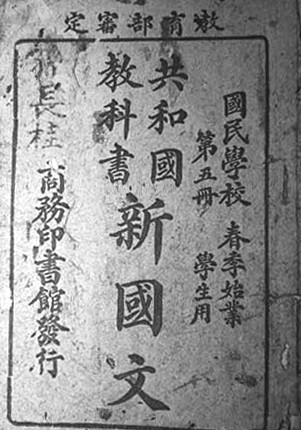 教育部審定
國民學校 春季始業
第五冊 學生用
共和國
教科書
新國文
商務印書館發行
長桂